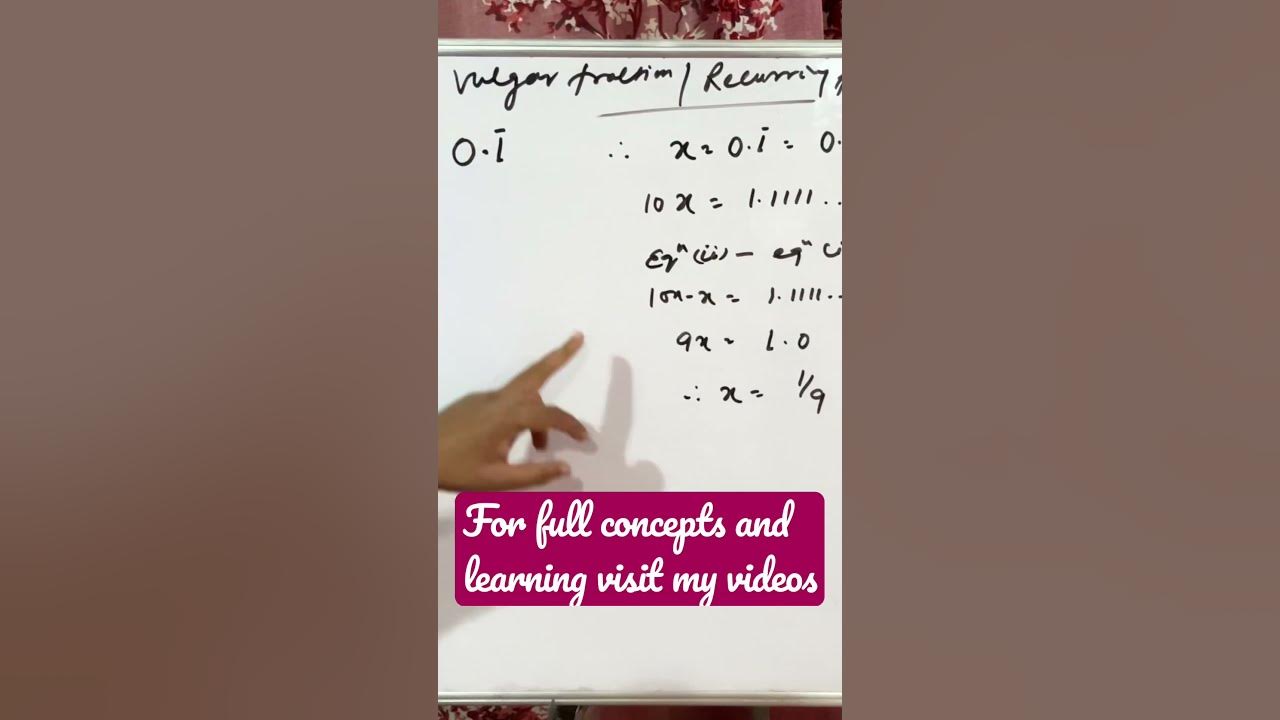 Vulgar fraction / Recurring
0.1̄ ∴ x = 0.1̄ = 0.
10x = 1.1111..
Eqⁿ (ii) – eqⁿ (i
10x-x = 1.1111..
9x = 1.0
∴ x = 1/9
For full concepts and
learning visit my videos